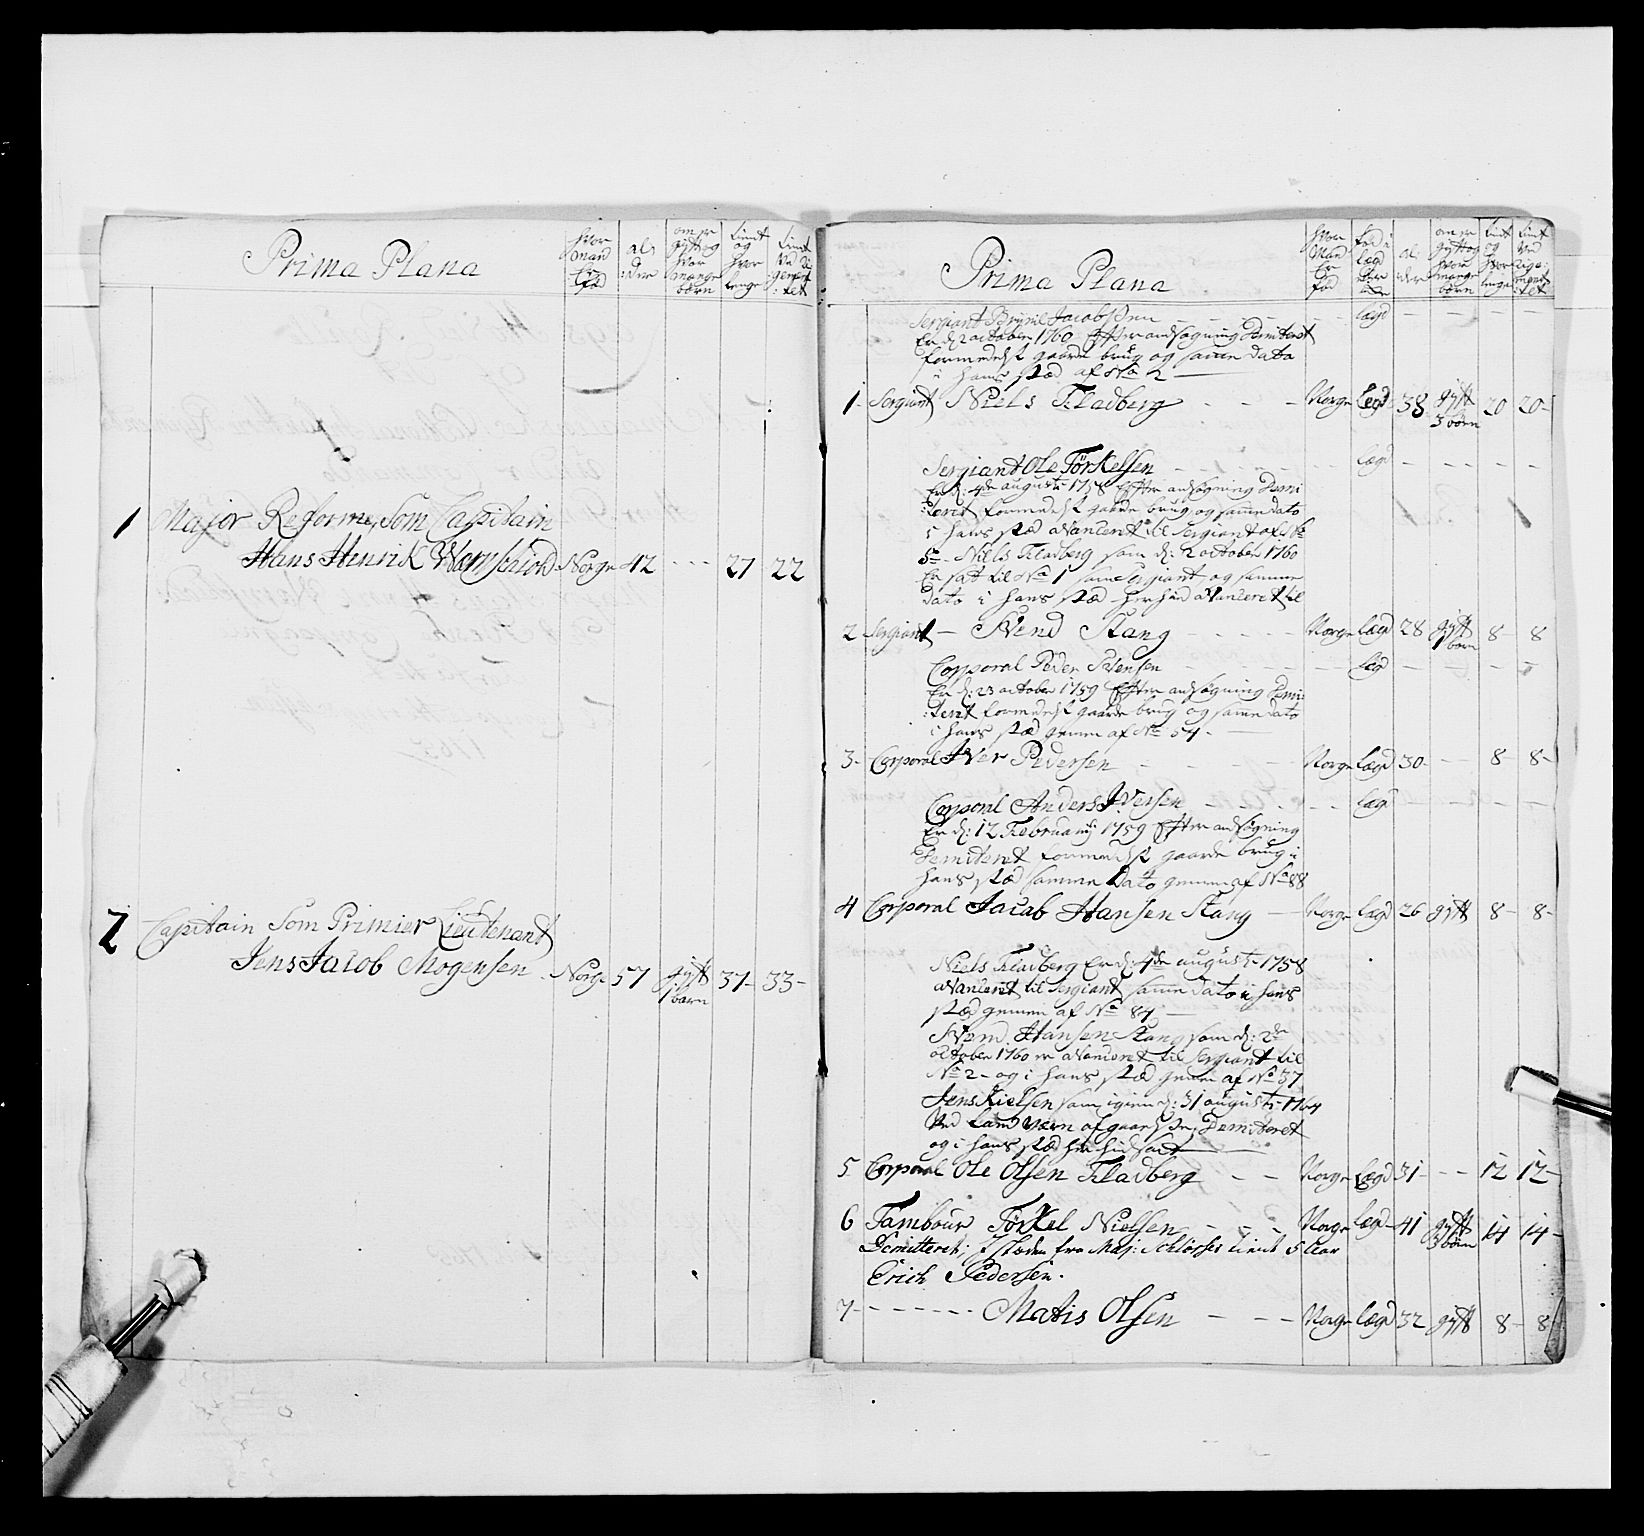 Prima Plana
hvor Mand Er fød
al: der
om er gift og hvor mange børn
tient og hvor lenge
tient ved Re:giment:tet
1 Major Reforme, Som Capitain
Hans Henrik Norge 42 - - - 27 22
2 Capitain Som Primier Lieutenant
Jens Jacob Mogensen Norge 57 gift 1 barn 37- 33-
Prima Plana
hvor Mand Er fød
al: der
om er gift og hvor mange børn
tient og hvor lenge
tient ved Rege:ments:tet
Sergiant Jacobsen - - - - Lægd - - - -
Er d: 2 october 1760 Efter ansøgning Demiteret
formedelst gaarde brug og samme dato
i hans stæd af No 2
1- Sergiant Niels Fladberg - - - Norge Lægd 38 gift 3 børn 20 20-
Sergiant Ole Törkelsen - - - - - Lægd - - - - -
Er d: 4de augusti 1758 Efter ansøgning Demi
:teret formedelst gaarde brug og samme dato
i hans stæd avanceret til Sergiant af No
5- Niels Fladberg som d: 2 october 1760
Er sat til No 1 som Sergiant og samme
dato i hans stæd herhid avanceret til
2 Sergiant - Svend Stang - - - - Norge Lægd 28 gift 1 barn 8- 8
Corporal Peder Svensen - - - - Lægd - - - -
Er d: 23 october 1759 Efter ansøgning Demi:
:teret formedelst gaarde brug og samme dato
i hans stæd gemen af No 54-
3- Corporal Iver Pedersen - - - - Norge Lægd 30- - - 8- 8-
Corporal Anders Iversen - - - - - Lægd - - - - -
Er d: 12 Februarij 1759 Efter ansøgning
Demiteret formedelst gaarde brug i
hans stæd samme Dato gemen af No 88
4 Corporal Jacob Hansen Stang - Norge Lægd 26 gift 8- 8-
Niels Fladberg Er d: 4de augusti 1758
avanceret til Sergiant samme dato i hans
stæd gemen af No 84
Svend Hansen Stang som d: 2de
october 1760 er avanceret til Sergiant til
No 2- og i hans stæd gemen af No 37
Jens Kielsen som igien d: 31 augusti 1764
Ved Land Værn afgaard Demiteret
og i hans stæd herhid sat
5 Corporal Ole Olsen Fladberg - - Norge Lægd 31- - - 12 12-
6 Tambour Törkel Nielsen - - - Norge Lægd 41 gift 3 børn 14 14-
Demitteret, I stæden fra Maj: Schlösser tient 5 Aar
Erich Pedersen.
7- - - - - - - Matis Olsen - - - Norge Lægd 32 gift 8- 8-